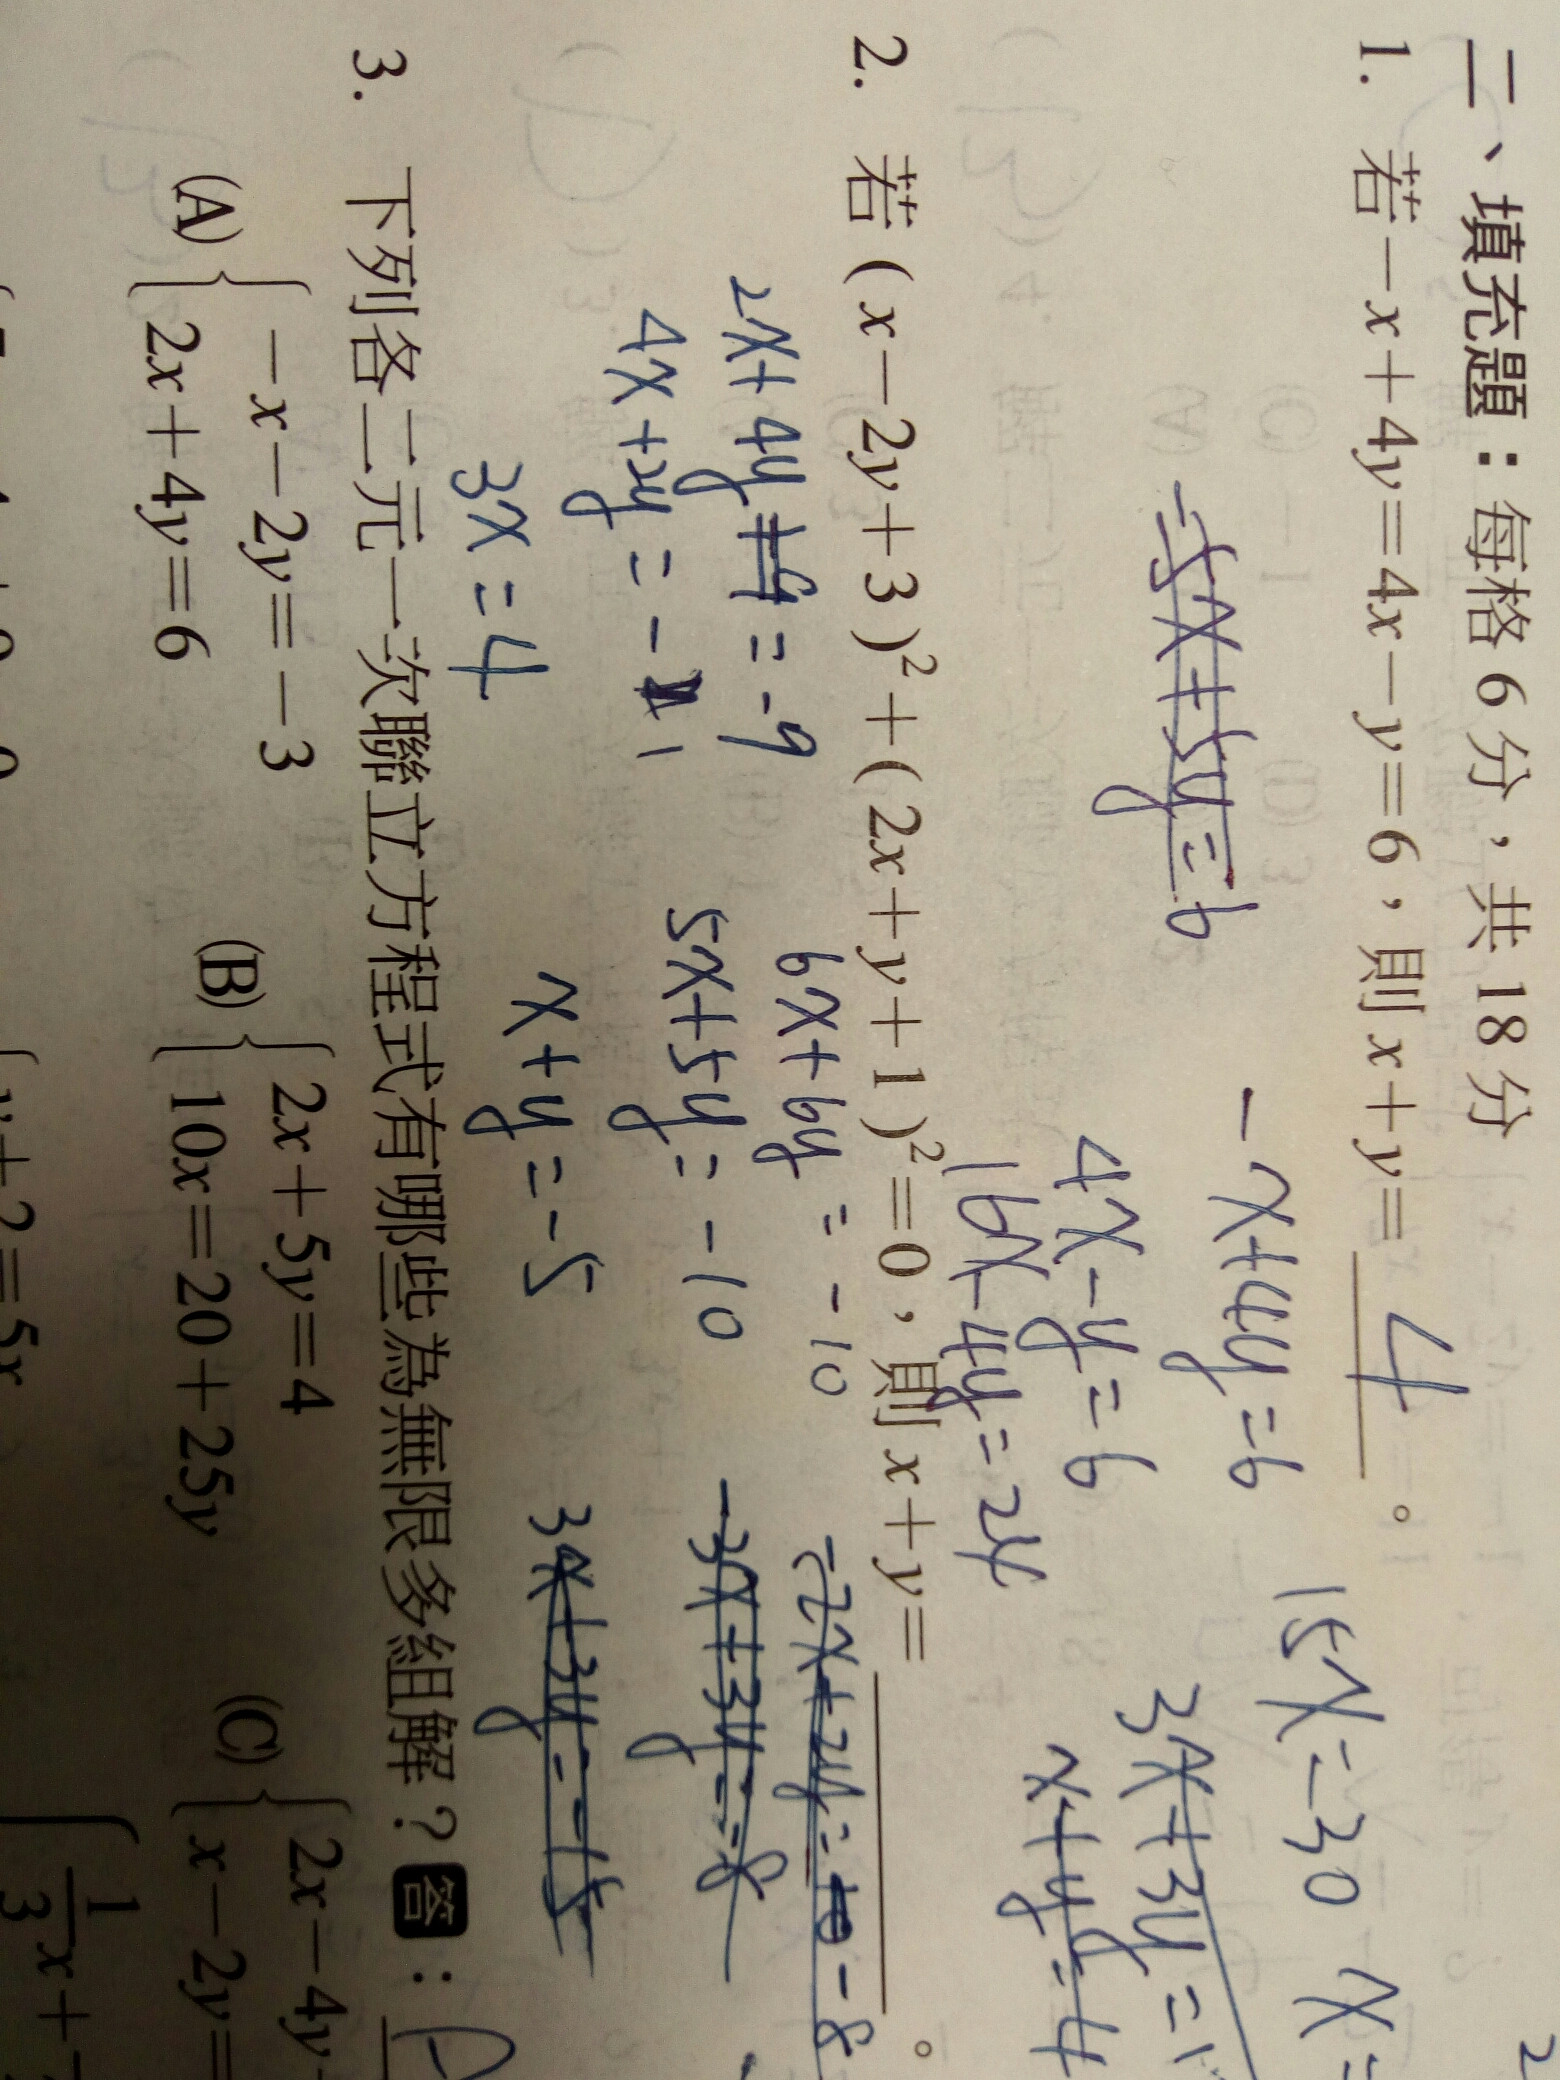 二、填充題：每格 6 分，共 18 分
1. 若 −x＋4y＝4x−y＝6，則 x＋y＝ 4 。
−5x＋5y＝6
−x＋4y＝6
4x−y＝6
16x−4y＝24
15x＝30 x＝
3x＋3y＝1
x＋y＝4
2. 若 (x−2y＋3)²＋(2x＋y＋1)²＝0，則 x＋y＝ 。
2x＋4y ＝−9
4x＋2y＝− 1
3x＝4
6x＋6y＝−10
5x＋5y＝−10
x＋y＝−5
−2x＋2y＝ −8
−3x＋3y＝−8
3x＋3y＝−15
3. 下列各二元一次聯立方程式有哪些為無限多組解？答：
(A) {−x−2y＝−3
2x＋4y＝6
(B) {2x＋5y＝4
10x＝20＋25y
(C) {2x−4y
x−2y＝
y＋2＝5x
1/3 x＋